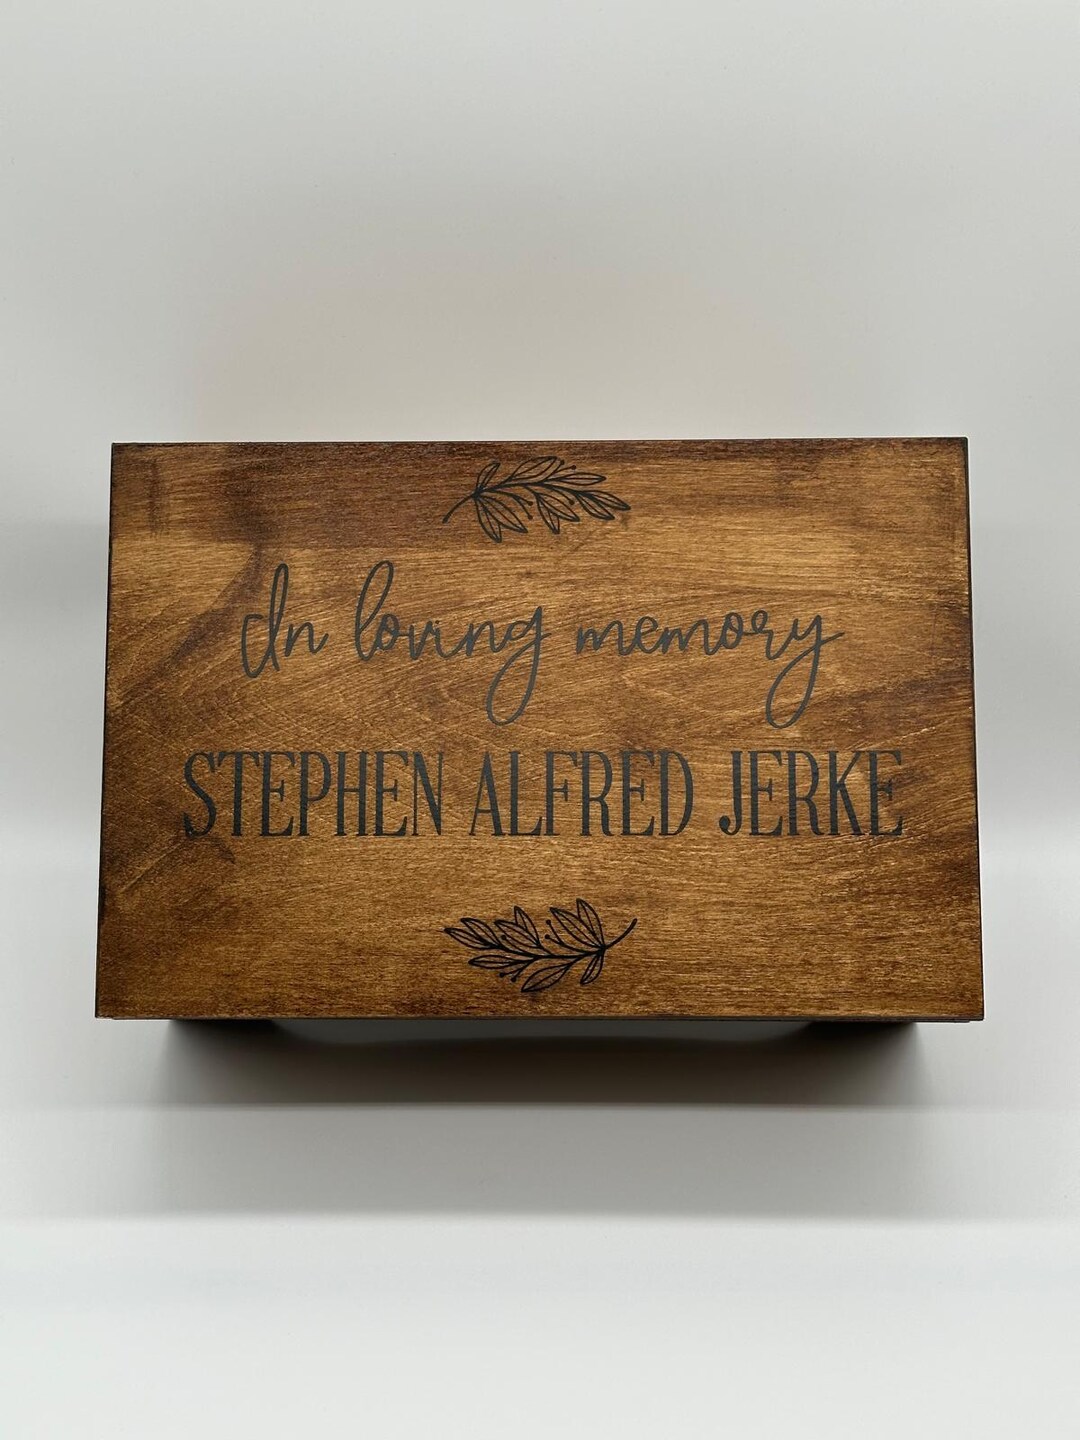 In loving memory
STEPHEN ALFRED JERKE